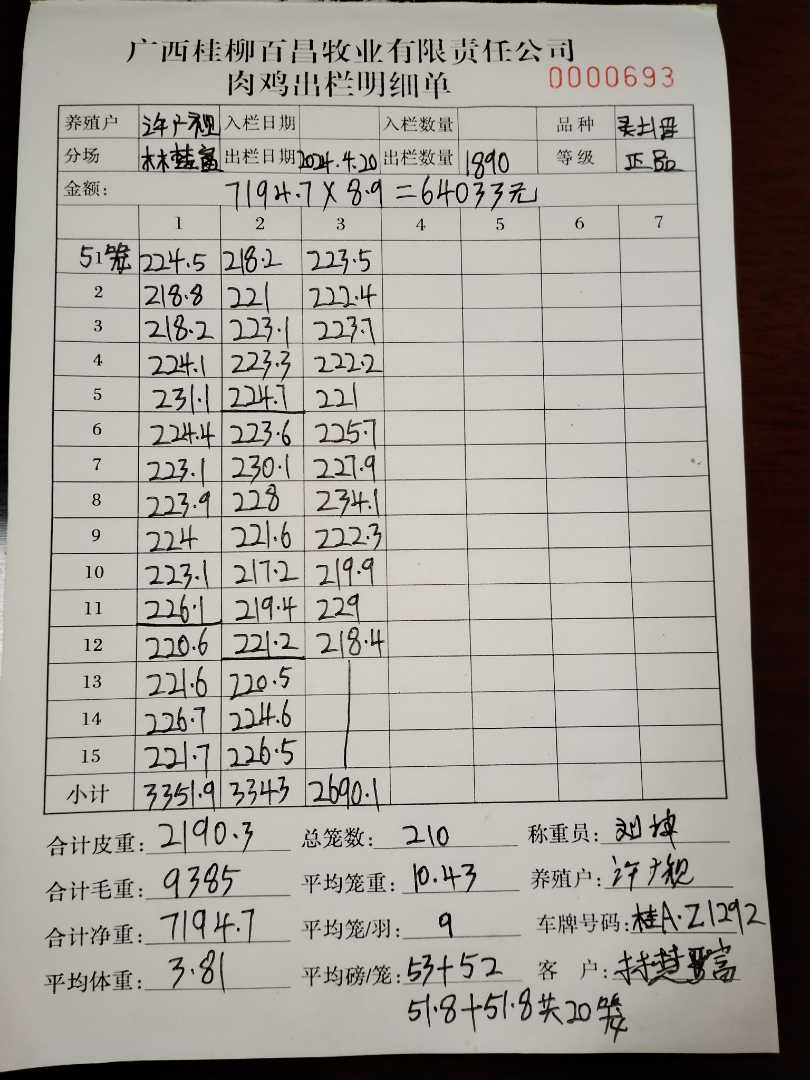 广西桂柳百昌牧业有限责任公司
肉鸡出栏明细单 0000693
养殖户 许广视 入栏日期 入栏数量 品种
分场 林楚富 出栏日期 2024.4.20 出栏数量 1890 等级 正品
金额: 7194.7×8.9=64033元
1 2 3 4 5 6 7
51笼 224.5 218.2 223.5
2 218.8 221 222.4
3 218.2 223.1 223.7
4 224.1 223.3 222.2
5 231.1 224.7 221
6 224.4 223.6 225.7
7 223.1 230.1 227.9
8 223.9 228 234.1
9 224 221.6 222.3
10 223.1 217.2 219.9
11 226.1 219.4 229
12 220.6 221.2 218.4
13 221.6 220.5
14 226.7 224.6
15 221.7 226.5
小计 3351.9 3343 2690.1
合计皮重: 2190.3 总笼数: 210 称重员: 刘坤
合计毛重: 9385 平均笼重: 10.43 养殖户: 许广视
合计净重: 7194.7 平均笼/羽: 9 车牌号码: 桂A·Z1292
平均体重: 3.81 平均磅/笼: 53+52 客户: 林楚富
51.8+51.8共20笼